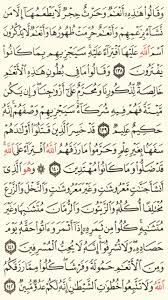 وَقَالُوا۟ هَـٰذِهِۦٓ أَنْعَـٰمٌ وَحَرْثٌ حِجْرٌ لَّا يَطْعَمُهَآ إِلَّا مَن
نَّشَآءُ بِزَعْمِهِمْ وَأَنْعَـٰمٌ حُرِّمَتْ ظُهُورُهَا وَأَنْعَـٰمٌ لَّا يَذْكُرُونَ
ٱسْمَ ٱللَّهِ عَلَيْهَا ٱفْتِرَآءً عَلَيْهِ سَيَجْزِيهِم بِمَا كَانُوا۟
يَفْتَرُونَ ١٣٨ وَقَالُوا۟ مَا فِى بُطُونِ هَـٰذِهِ ٱلْأَنْعَـٰمِ
خَالِصَةٌ لِّذُكُورِنَا وَمُحَرَّمٌ عَلَىٰٓ أَزْوَٰجِنَا وَإِن يَكُن
مَّيْتَةً فَهُمْ فِيهِ شُرَكَآءُ سَيَجْزِيهِمْ وَصْفَهُمْ إِنَّهُۥ
حَكِيمٌ عَلِيمٌ ١٣٩ قَدْ خَسِرَ ٱلَّذِينَ قَتَلُوٓا۟ أَوْلَـٰدَهُمْ
سَفَهًۢا بِغَيْرِ عِلْمٍ وَحَرَّمُوا۟ مَا رَزَقَهُمُ ٱللَّهُ ٱفْتِرَآءً عَلَى ٱللَّهِ
قَدْ ضَلُّوا۟ وَمَا كَانُوا۟ مُهْتَدِينَ ١٤٠ وَهُوَ ٱلَّذِىٓ
أَنشَأَ جَنَّـٰتٍ مَّعْرُوشَـٰتٍ وَغَيْرَ مَعْرُوشَـٰتٍ وَٱلنَّخْلَ وَٱلزَّرْعَ
مُخْتَلِفًا أُكُلُهُۥ وَٱلزَّيْتُونَ وَٱلرُّمَّانَ مُتَشَـٰبِهًا وَغَيْرَ
مُتَشَـٰبِهٍ كُلُوا۟ مِن ثَمَرِهِۦٓ إِذَآ أَثْمَرَ وَءَاتُوا۟ حَقَّهُۥ يَوْمَ
حَصَادِهِۦ وَلَا تُسْرِفُوٓا۟ إِنَّهُۥ لَا يُحِبُّ ٱلْمُسْرِفِينَ ١٤١
وَمِنَ ٱلْأَنْعَـٰمِ حَمُولَةً وَفَرْشًا كُلُوا۟ مِمَّا رَزَقَكُمُ
ٱللَّهُ وَلَا تَتَّبِعُوا۟ خُطُوَٰتِ ٱلشَّيْطَـٰنِ إِنَّهُۥ لَكُمْ عَدُوٌّ مُّبِينٌ ١٤٢